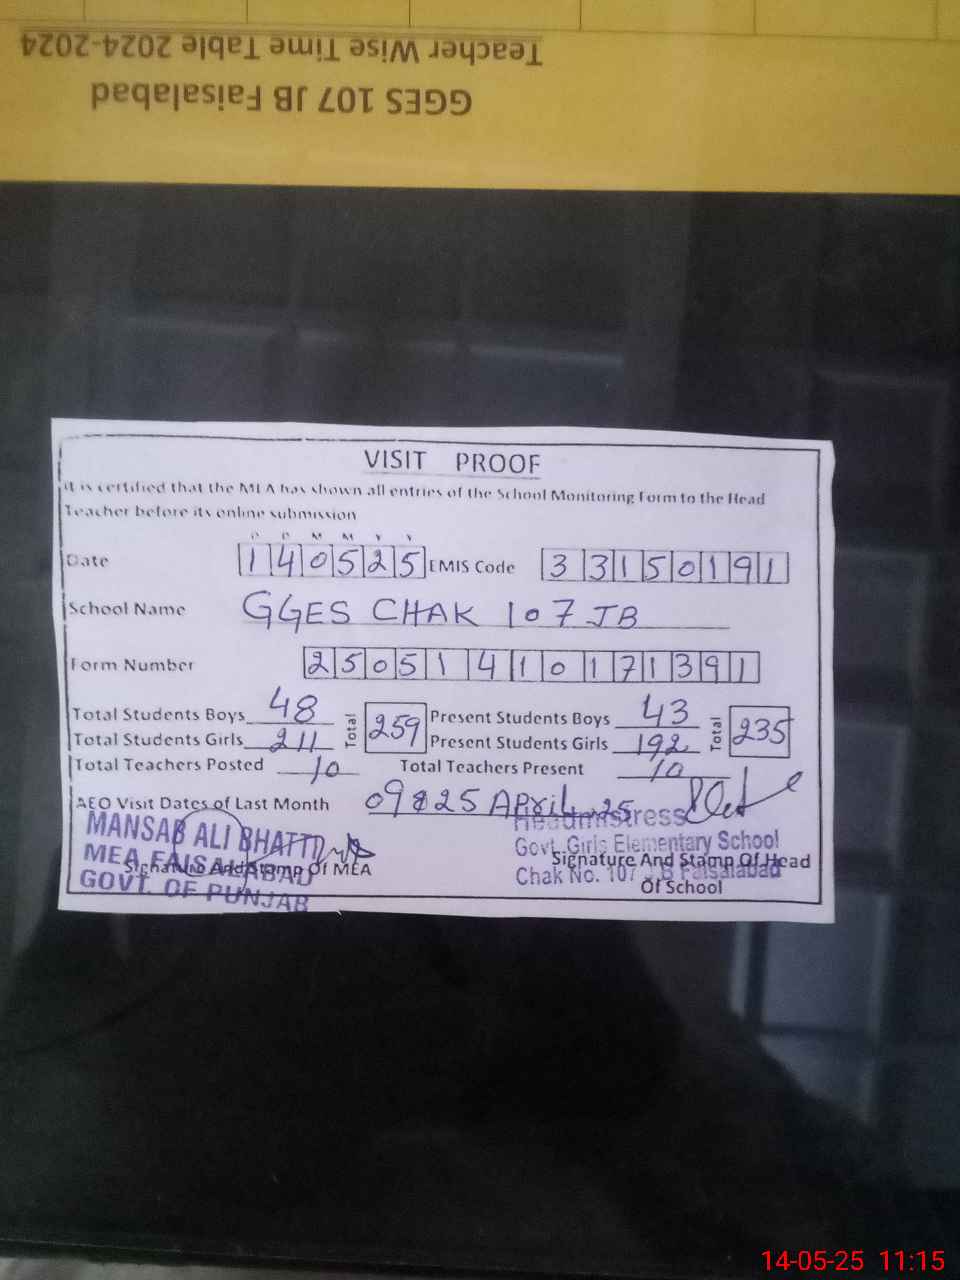 Teacher Wise Time Table 2024-2024
GGES 107 JB Faisalabad
VISIT PROOF
It is certified that the MEA has shown all entries of the School Monitoring Form to the Head
Teacher before its online submission
D D M M Y Y
Date 140525 EMIS Code 33150191
School Name GGES CHAK 107 JB
Form Number 25051410171391
Total Students Boys 48 Total 259 Present Students Boys 43 Total 235
Total Students Girls 211 Present Students Girls 192
Total Teachers Posted 10 Total Teachers Present 10
AEO Visit Dates of Last Month 09 & 25 April 25
MANSAB ALI BHATTI
MEA FAISALABAD
GOVT. OF PUNJAB
Signature And Stamp Of MEA
Headmistress
Govt. Girls Elementary School
Chak No. 107 J.B Faisalabad
Signature And Stamp Of Head
Of School
14-05-25 11:15